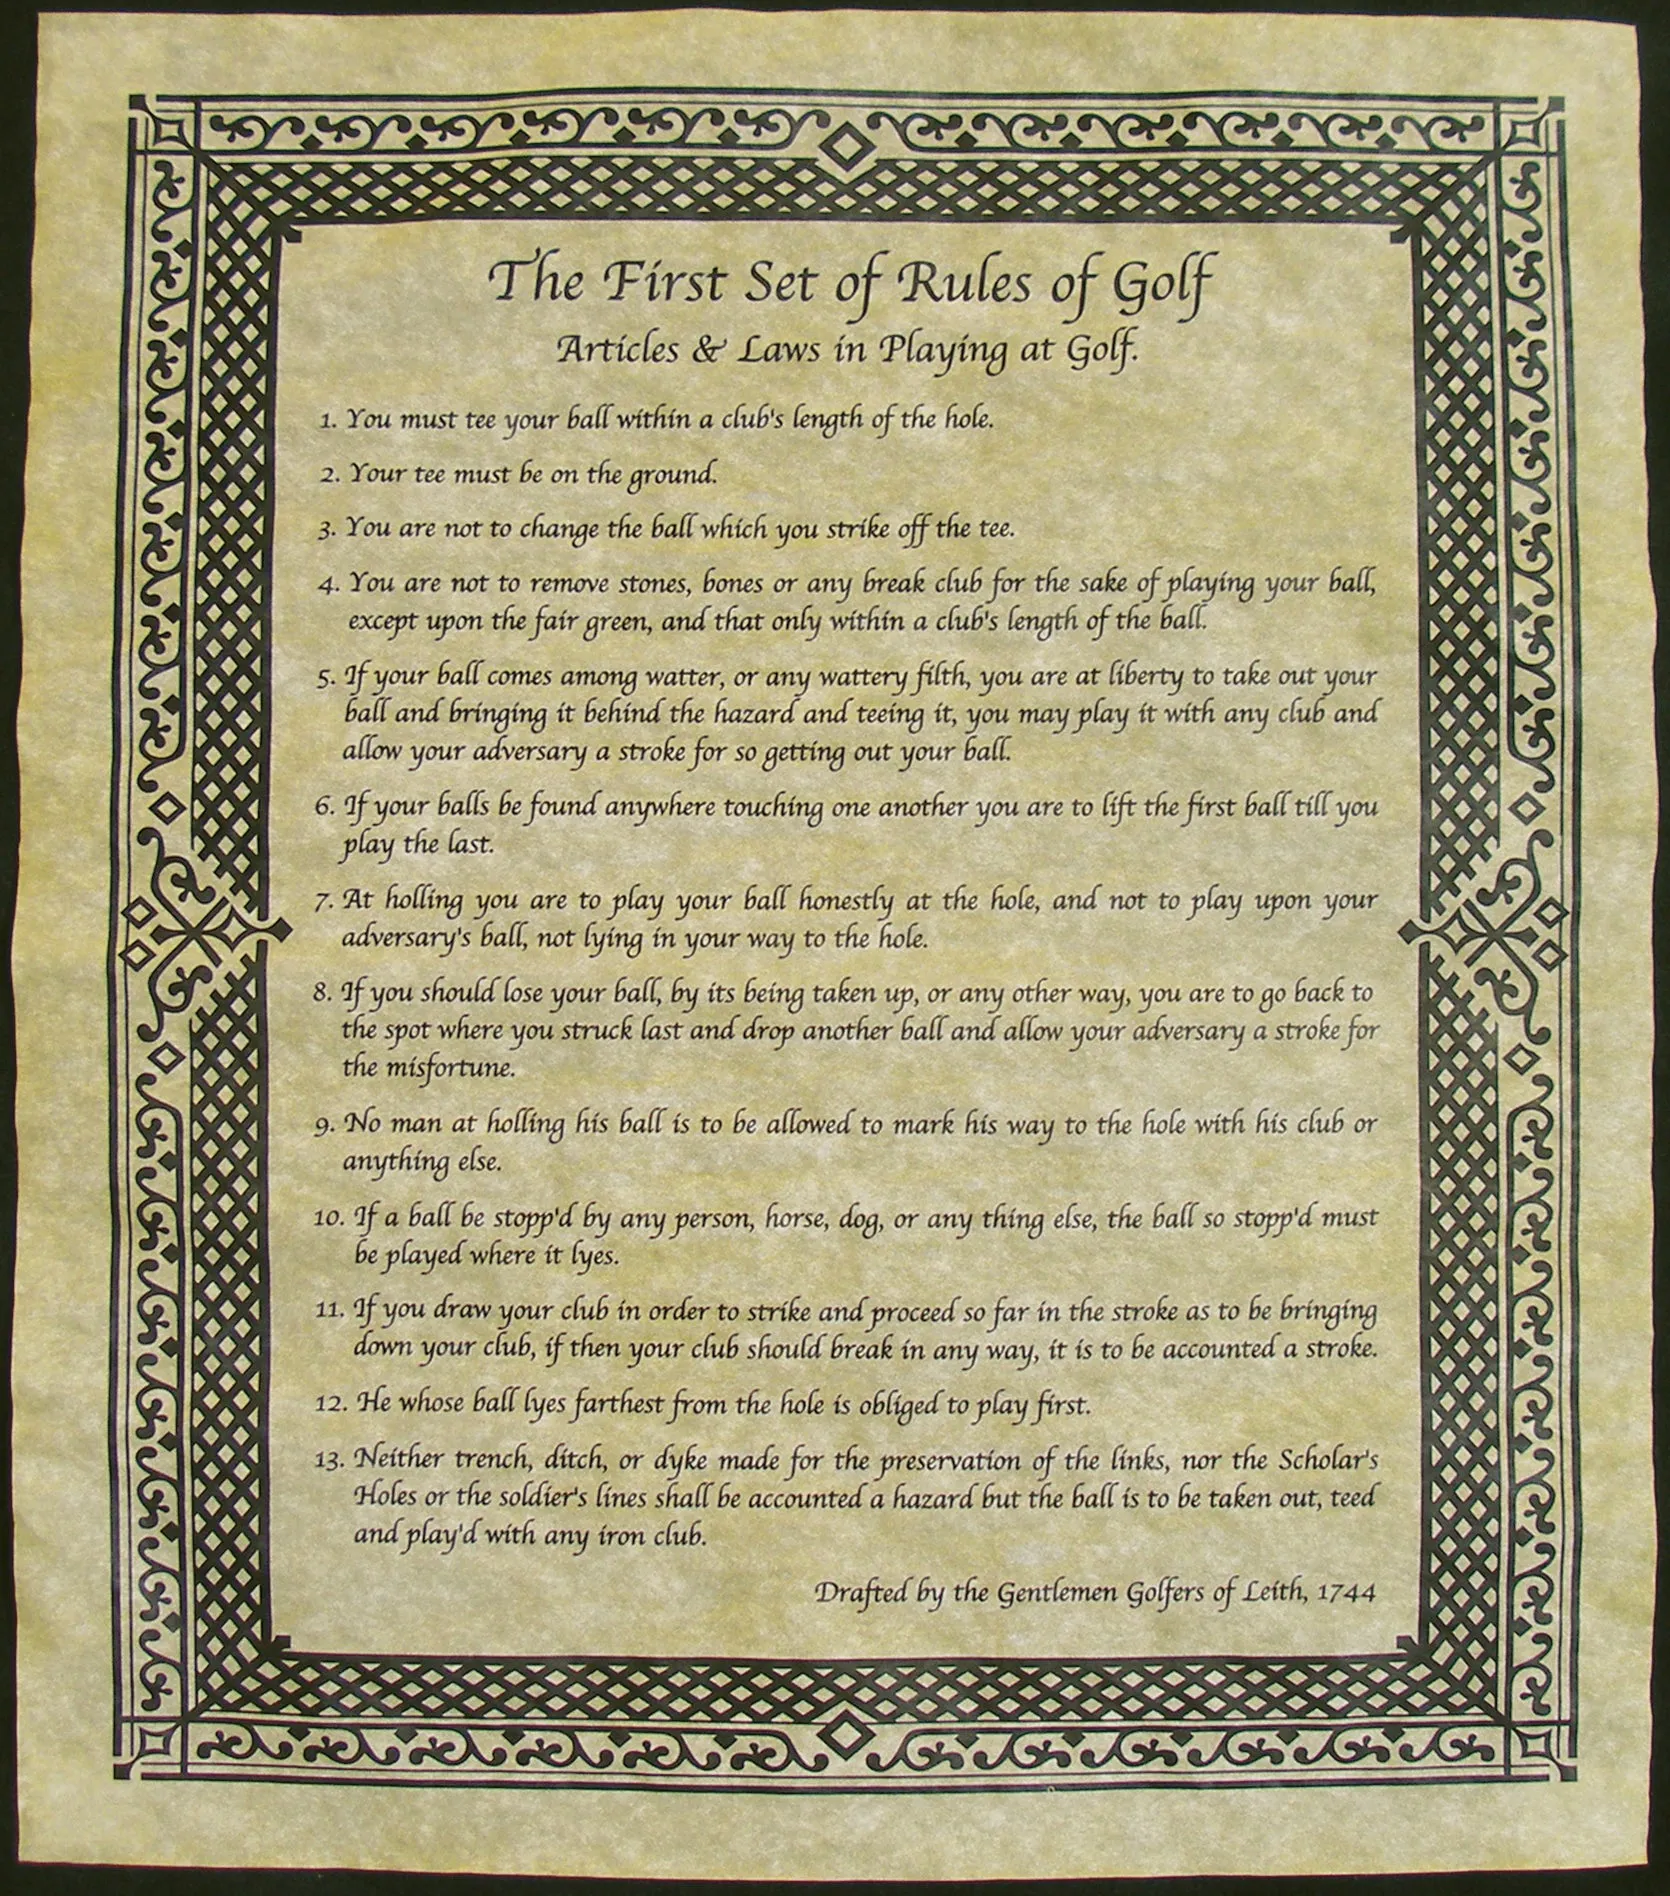 The First Set of Rules of Golf
Articles & Laws in Playing at Golf.
1. You must tee your ball within a club's length of the hole.
2. Your tee must be on the ground.
3. You are not to change the ball which you strike off the tee.
4. You are not to remove stones, bones or any break club for the sake of playing your ball,
except upon the fair green, and that only within a club's length of the ball.
5. If your ball comes among watter, or any wattery filth, you are at liberty to take out your
ball and bringing it behind the hazard and teeing it, you may play it with any club and
allow your adversary a stroke for so getting out your ball.
6. If your balls be found anywhere touching one another you are to lift the first ball till you
play the last.
7. At holling you are to play your ball honestly at the hole, and not to play upon your
adversary's ball, not lying in your way to the hole.
8. If you should lose your ball, by its being taken up, or any other way, you are to go back to
the spot where you struck last and drop another ball and allow your adversary a stroke for
the misfortune.
9. No man at holling his ball is to be allowed to mark his way to the hole with his club or
anything else.
10. If a ball be stopp'd by any person, horse, dog, or any thing else, the ball so stopp'd must
be played where it lyes.
11. If you draw your club in order to strike and proceed so far in the stroke as to be bringing
down your club, if then your club should break in any way, it is to be accounted a stroke.
12. He whose ball lyes farthest from the hole is obliged to play first.
13. Neither trench, ditch, or dyke made for the preservation of the links, nor the Scholar's
Holes or the soldier's lines shall be accounted a hazard but the ball is to be taken out, teed
and play'd with any iron club.
Drafted by the Gentlemen Golfers of Leith, 1744